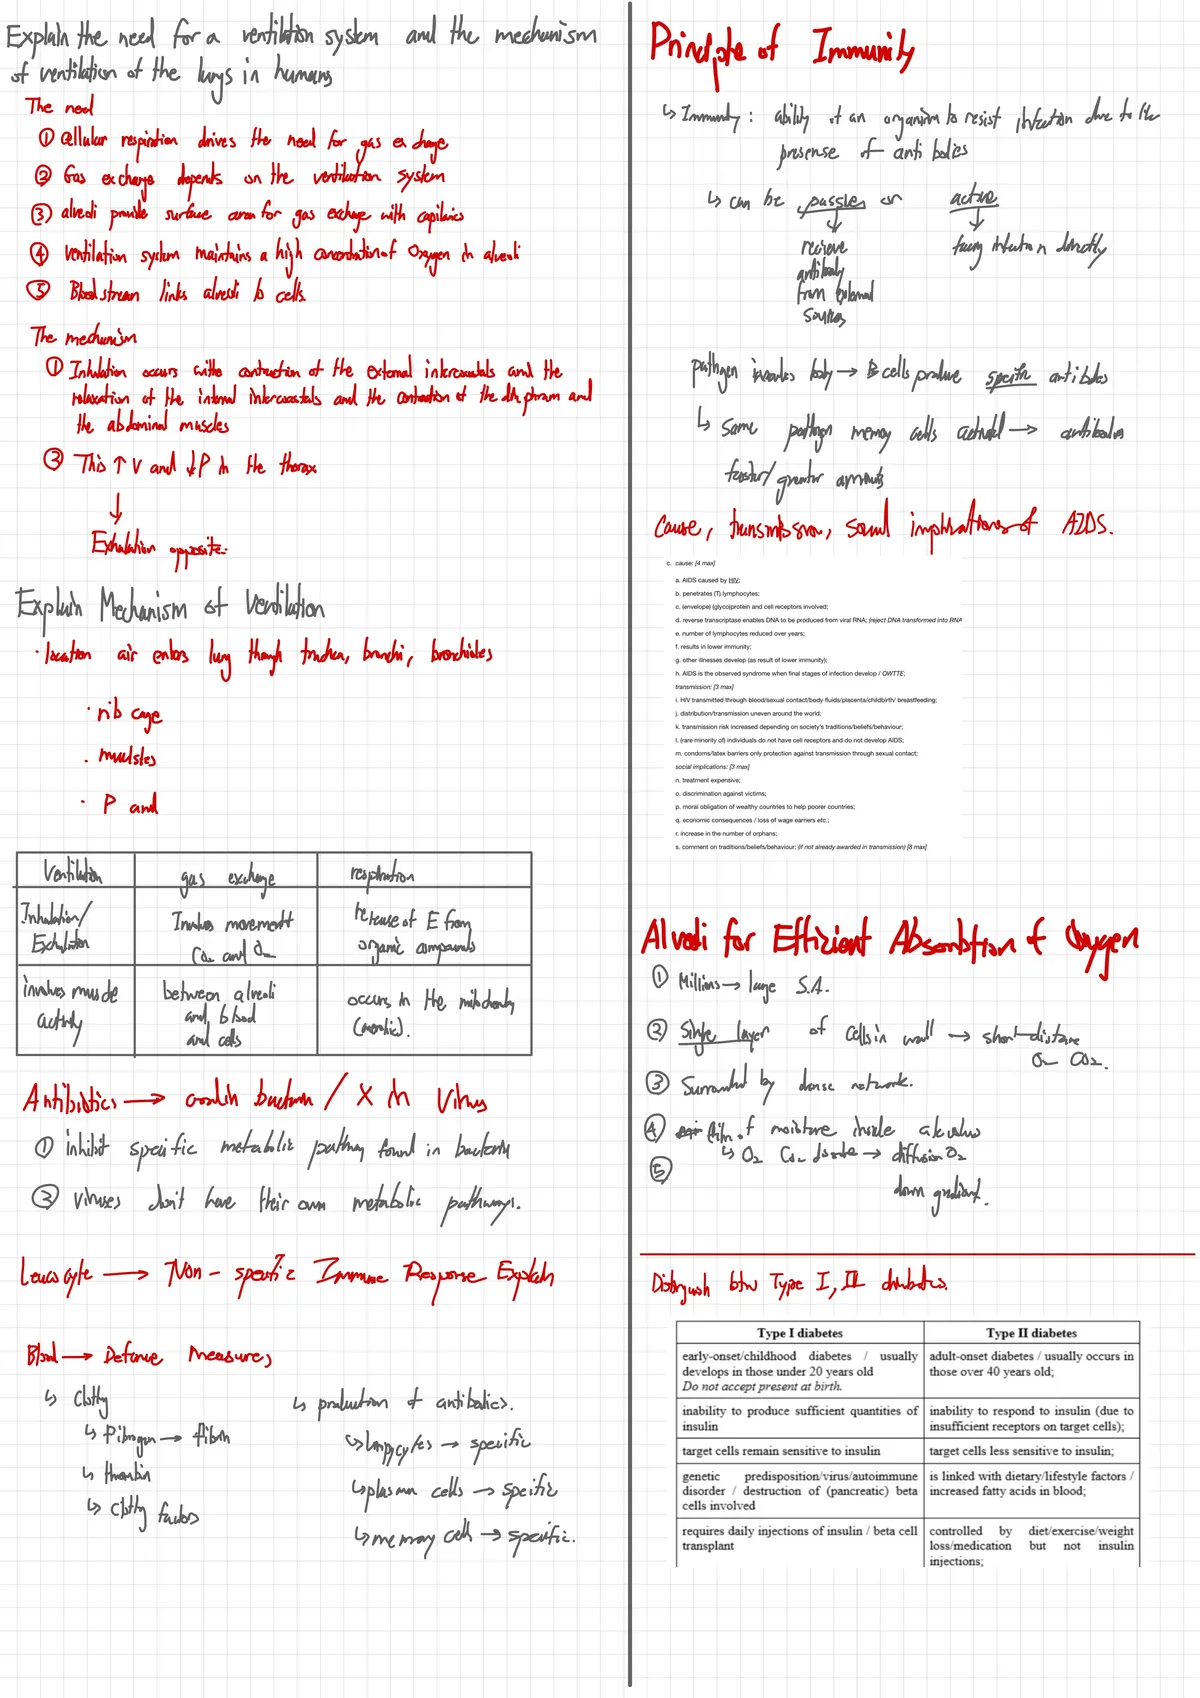 Explain the need for a ventilation system and the mechanism
of ventilation of the lungs in humans
The need
① Cellular respiration drives the need for gas exchange
② Gas exchange depends on the ventilation system
③ alveoli provide surface area for gas exchange with capilaries
④ ventilation system maintains a high concentration of Oxygen in alveoli
⑤ Blood stream links alveoli to cells.
The mechanism
① Inhalation occurs with contraction of the external intercoastals and the
relaxation of the internal intercoastals and the contraction of the diaphram and
the abdominal muscles
② This ↑ V and ↓ P in the thorax
↓
Exhalation opposite.
Explain Mechanism of Ventilation
· location air enters lung though trachea, bronchi, bronchioles
· rib cage
· muscles
· P and
Ventilation gas exchange respiration
Inhalation/ Involves movement release of E from
Exhalation CO2 and O2 organic compounds
involves muscle between alveoli occurs in the mitochondry
activity and blood
and cells
Antibiotics → bacteria / X in Virus
① inhibit specific metabolic pathway found in bacteria
② viruses don't have their own metabolic pathways.
Leucocyte → Non - specific Immune Response Explain
Blood → Defence Measures
↳ Clotty
↳ fibrogen → fibrin
↳ thrombin
↳ Clotty factors
↳ production of antibodies.
↳ → specific
↳ plasma cells → specific
↳ memory cell → specific.
Principle of Immunity
↳ Immunity : ability of an organism to resist infection due to the
presense of anti bodies
↳ can be passive or active
↓ ↓
recieve infection directly
antibody
from external
sources
pathogen invades body → B cells produce specific antibodies
↳ Same pathogen memory cells → antibodies
faster/ greater amounts
Cause, transmission, social implications of AIDS.
c. cause: [4 max]
a. AIDS caused by HIV;
b. penetrates (T) lymphocytes;
c. (envelope) (glyco)protein and cell receptors involved;
d. reverse transcriptase enables DNA to be produced from viral RNA; (reject DNA transformed into RNA
e. number of lymphocytes reduced over years;
f. results in lower immunity;
g. other illnesses develop (as result of lower immunity);
h. AIDS is the observed syndrome when final stages of infection develop / OWTTE;
transmission: [3 max]
i. HIV transmitted through blood/sexual contact/body fluids/placenta/childbirth/ breastfeeding;
j. distribution/transmission uneven around the world;
k. transmission risk increased depending on society's traditions/beliefs/behaviour;
l. (rare minority of) individuals do not have cell receptors and do not develop AIDS;
m. condoms/latex barriers only protection against transmission through sexual contact;
social implications: [3 max]
n. treatment expensive;
o. discrimination against victims;
p. moral obligation of wealthy countries to help poorer countries;
q. economic consequences / loss of wage earners etc.;
r. increase in the number of orphans;
s. comment on traditions/beliefs/behaviour; (if not already awarded in transmission) [8 max]
Alveoli for Efficient Absorbtion of Oxygen
① Millions → large S.A.
② Single layer of cells in wall → short distance
O2 CO2.
③ Surrounded by dense network.
④ film of moisture inside alveolus
↳ O2 CO2 → diffusion O2
⑤ down gradient.
Distinguish btw Type I, II diabetes.
Type I diabetes Type II diabetes
early-onset/childhood diabetes / usually adult-onset diabetes / usually occurs in
develops in those under 20 years old those over 40 years old;
Do not accept present at birth.
inability to produce sufficient quantities of inability to respond to insulin (due to
insulin insufficient receptors on target cells);
target cells remain sensitive to insulin target cells less sensitive to insulin;
genetic predisposition/virus/autoimmune is linked with dietary/lifestyle factors /
disorder / destruction of (pancreatic) beta increased fatty acids in blood;
cells involved
requires daily injections of insulin / beta cell controlled by diet/exercise/weight
transplant loss/medication but not insulin
injections;